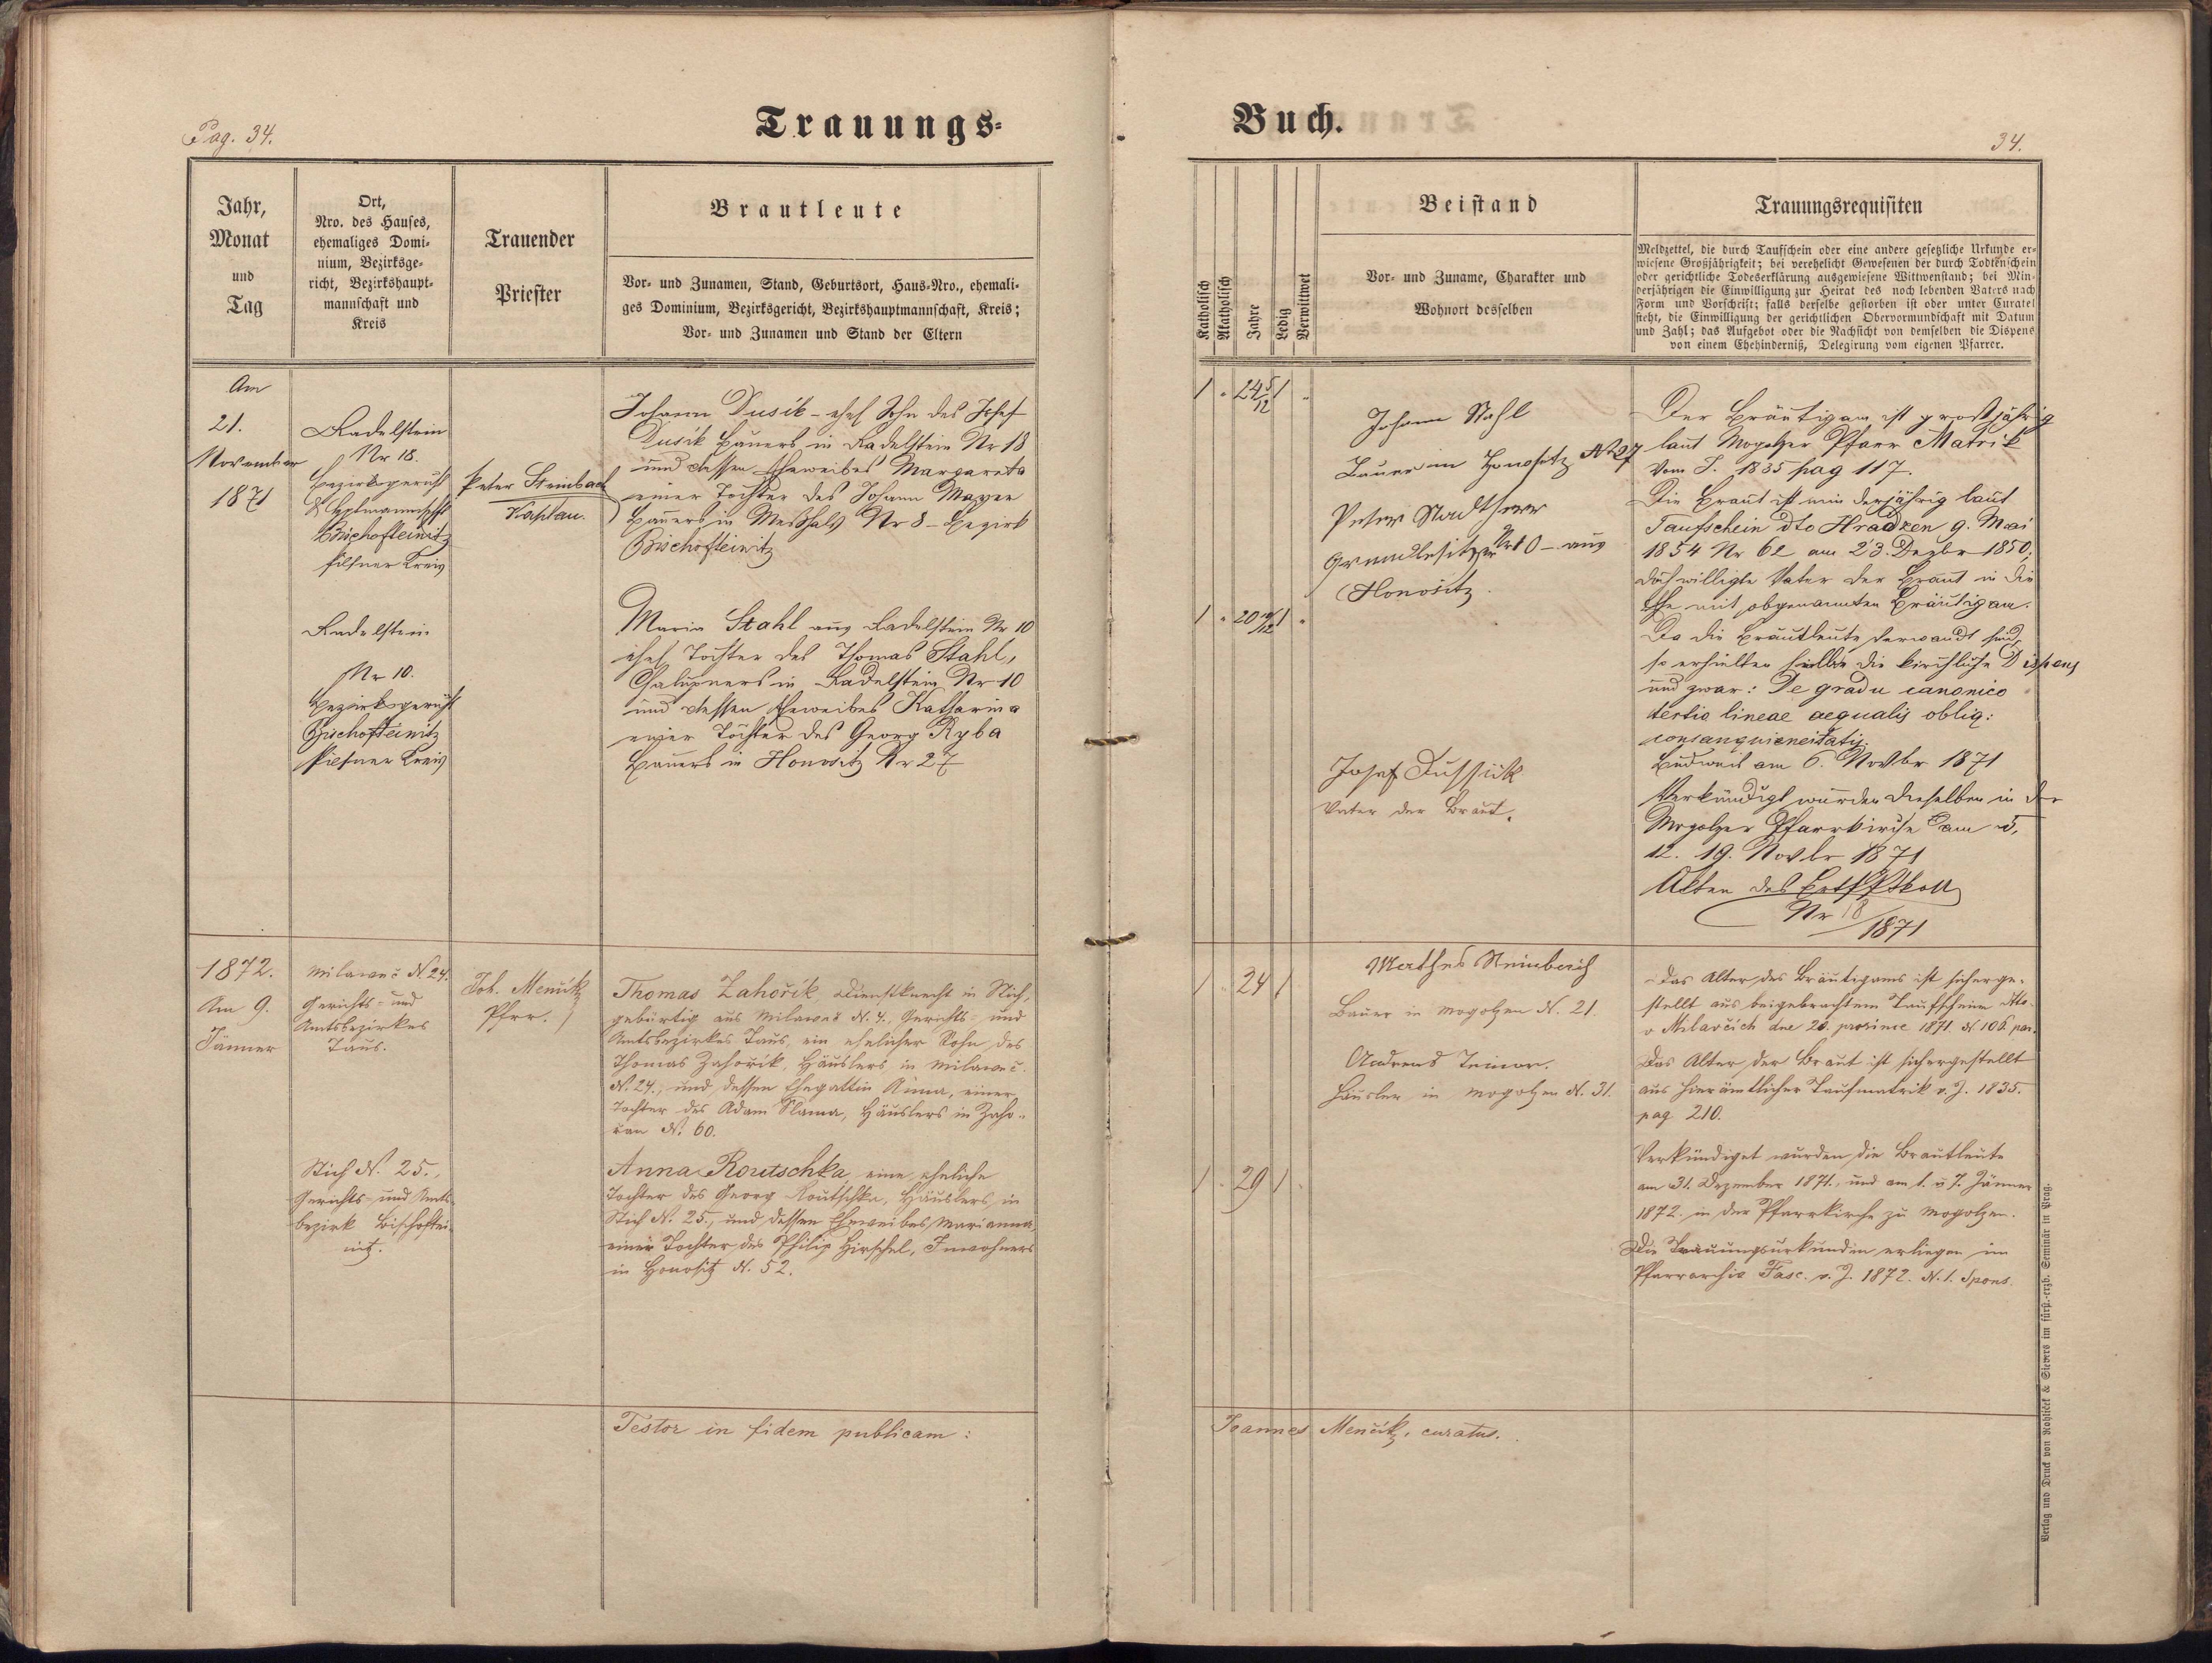 Pag. 34.
Trauungs-
Jahr,
Monat
und
Tag
Ort,
Nro. des Hauses,
ehemaliges Domi-
nium, Bezirksge-
richt, Bezirkshaupt-
mannschaft und
Kreis
Trauender
Priester
Brautleute
Vor- und Zunamen, Stand, Geburtsort, Haus-Nro., ehemali-
ges Dominium, Bezirksgericht, Bezirkshauptmannschaft, Kreis;
Vor- und Zunamen und Stand der Eltern
Am
21.
November
1871
Radelstein
Nr 18.
Bezirksgericht
Bischofteinitz
Pilsner Kreis
Peter Steinbach
Kaplan.
Johann Dusik - ehel Sohn des Josef
Dusik Bauers in Radelstein Nr 18
und dessen Eheweibes Margareta
einer Tochter des Johann Mayer
Bauers in Meßhals Nr 8 - Bezirk
Bischofteinitz
Radelstein
Nr 10.
Bezirksgericht
Bischofteinitz
Pilsner Kreis
Maria Stahl aus Radelstein Nr 10
ehel Tochter des Thomas Stahl,
Chalupners in Radelstein Nr 10
und dessen Eheweibes Katharina
einer Tochter des Georg Ryba
Bauers in Honositz Nr 27
1872.
Am 9.
Jänner
Milaweč N. 24.
Gerichts- und
Amtsbezirkes
Taus.
Joh. Menčik
Pfrr.
Thomas Zahořik, Dienstknecht in Stich,
gebürtig aus Milaweč N. 4., Gerichts- und
Amtsbezirkes Taus, ein ehelicher Sohn des
Thomas Zahořik, Häuslers in Milaweč
N. 24., und dessen Ehegattin Anna, einer
Tochter des Adam Slama, Häuslers in Zaho-
řan N. 60.
Stich N. 25.,
Gerichts- und Amts-
bezirk Bischoftei-
nitz.
Anna Routschka, eine eheliche
Tochter des Georg Routschka, Häuslers in
Stich N. 25., und dessen Eheweibes Marianna
einer Tochter des Philip Hirschel, Inwohners
in Honositz N. 52.
Testor in fidem publicam:
Buch.
34.
Katholisch
Akatholisch
Jahre
Ledig
Verwittwet
Beistand
Vor- und Zuname, Charakter und
Wohnort desselben
Trauungsrequisiten
Meldzettel, die durch Taufschein oder eine andere gesetzliche Urkunde er-
wiesene Großjährigkeit; bei verehelicht Gewesenen der durch Todtenschein
oder gerichtliche Todeserklärung ausgewiesene Wittwenstand; bei Min-
derjährigen die Einwilligung zur Heirat des noch lebenden Vaters nach
Form und Vorschrift; falls derselbe gestorben ist oder unter Curatel
steht, die Einwilligung der gerichtlichen Obervormundschaft mit Datum
und Zahl; das Aufgebot oder die Nachsicht von demselben die Dispens
von einem Ehehinderniß, Delegirung vom eigenen Pfarrer.
1 " 24 5/12 1 "
Johann Stahl
Bauer in Honositz N 27
Peter Stadtherr
Grundbesitzer Nr 10 - aus
Honositz.
1 " 20 10/12 1 "
Josef Dussik
Vater der Braut.
Der Bräutigam ist großjährig
laut Mogolzer Pfarr Matrik
vom J. 1835 pag 117.
Die Braut ist minderjährig laut
Taufschein dto Hradzen 9. Mai
1854 Nr 62 am 23. Dezbr 1850;
doch willigte Vater der Braut in die
Ehe mit obgenannten Bräutigam.
Da die Brautleute verwandt sind,
so erhielten selbe die kirchliche Dispens
und zwar: De gradu canonico
tertio lineae aequalis obliq:
consanguineitatis
Budweis am 6. Novbr 1871
Verkündigt wurden dieselben in der
Mogolzer Pfarrkirche am 5.
12. 19. Novbr 1871
Akten des
Nr 18/1871
1 " 24 1
Mathes Steinbach
Bauer in Mogolzen N. 21.
Andreas
Häusler in Mogolzen N. 31.
1 " 29 1 "
Das Alter des Bräutigams ist sicherge-
stellt aus beigebrachtem Taufscheine dto.
v Milavčich dne 28. prosince 1871. N 106 par.
Das Alter der Braut ist sichergestellt
aus hierämtlicher Taufmatrik v. J. 1835.
pag 210.
Verkündiget wurden die Brautleute
am 31. Dezember 1871., und am 1. u 7. Jänner
1872. in der Pfarrkirche zu Mogolzen.
Die Trauungsurkunden erliegen im
Pfarrarchiv Fasc. v. J. 1872. N. 1. Spons.
Joannes Menčik, curatus.
Verlag und Druck von Rohliček & Sievers im fürst.-erzb. Seminär in Prag.